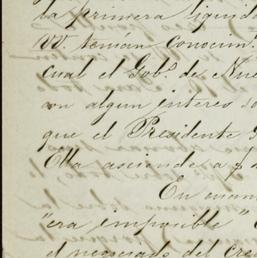 la primera liquid
VV. tenían conocim
cual el Gob.º de Nue
con algun interes so
que el Presidente
Olla asciende a
En cuan
"era imposible"
el negociado del cre